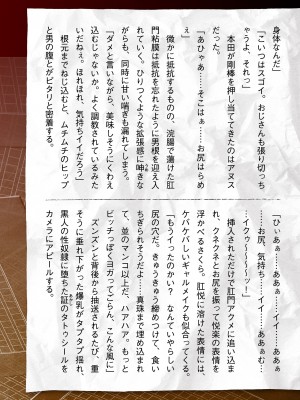 身体なんだ」
「こいつはスゴイ。おじさんも張り切っち
ゃうよ、それっ」
本田が剛棒を押し当ててきたのはアヌス
だった。
「あひゃあ……そこはぁ……お尻はらめ
ぇ」
微かに抵抗するものの、浣腸で蕩けた肛
門粘膜は抵抗を忘れたように男根を迎え入
れていく。ひりつくような拡張感に呻きな
がらも、同時に甘い喘ぎも漏れてしまう。
「ダメと言いながら、美味しそうにくわえ
込むじゃないか。よく調教されているみた
いだねぇ。ほれほれ、気持ちイイだろう」
根元までねじ込むと、ムチムチのヒップ
と男の腹とがピタリと密着する。
「ひぃぁぁ……ああ……イイ……ああぁ
……お尻、気持ち……イイ……あああぁむ…
…イクゥ～～～～ッ！」
挿入されただけで肛門アクメに追い込ま
れ、クネクネとお尻を振って悦楽の表情を
浮かべるさくら。肛悦に溶けた表情には、
ケバケバしいギャルメイクも似合ってくる。
「もうイッたのかい？　なんていやらしい
尻の穴だ。きゅうきゅう締めつけて、食い
ちぎられそうだよ……真珠まで埋め込まれ
て、並のマンコ以上だ、ハアハア。もっと
ビッチっぽくヨガってごらん、こんな風に」
ズンズンと背後から抽送されるたび、重
そうに垂れ下がった爆乳がタプタプ揺れ、
黒人の性奴隷に堕ちた証のタトゥシールを
カメラにアピールする。